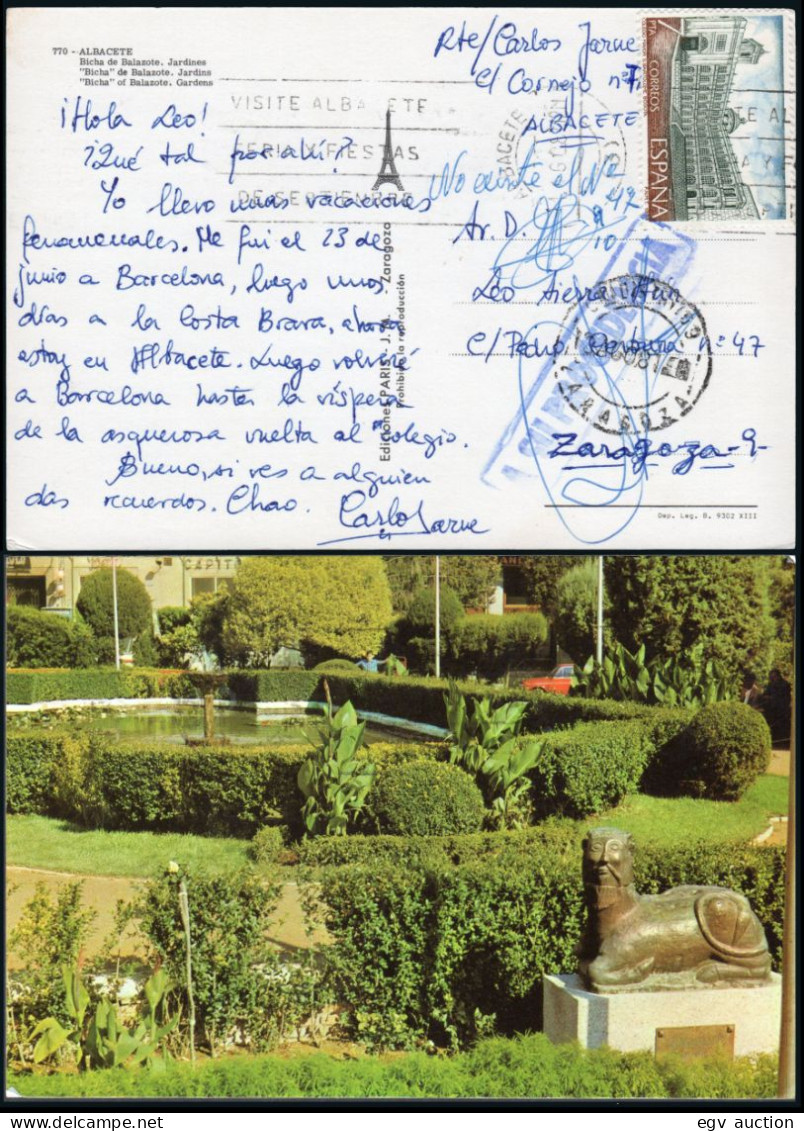 770 - ALBACETE
Bicha de Balazote. Jardines
"Bicha" de Balazote. Jardins
"Bicha" of Balazote. Gardens
¡Hola Leo!
¿Qué tal por ahí?
Yo llevo unas vacaciones
fenomenales. Me fui el 23 de
junio a Barcelona, luego unos
días a la Costa Brava, ahora
estoy en Albacete. Luego volveré
a Barcelona hasta la víspera
de la asquerosa vuelta al "colegio.
Bueno, si ves a alguien
das recuerdos. Chao.
Carlos Jarne
VISITE ALBACETE
FERIA Y FIESTAS
DE SEPTIEMBRE
Ediciones PARIS - J. M. - Zaragoza
Prohibida la reproducción
Rte/ Carlos Jarne
C/ Cornejo nº 7
ALBACETE
1 PTA
CORREOS
ESPAÑA
ALBACETE
No existe el Nº
47
Sr. D.
Leo Sierra
C/ Pedro nº 47
Zaragoza-9-
A SU PROCEDENCIA
ZARAGOZA
Dep. Leg. B. 9302 XIII
CAPITOL
egv auction